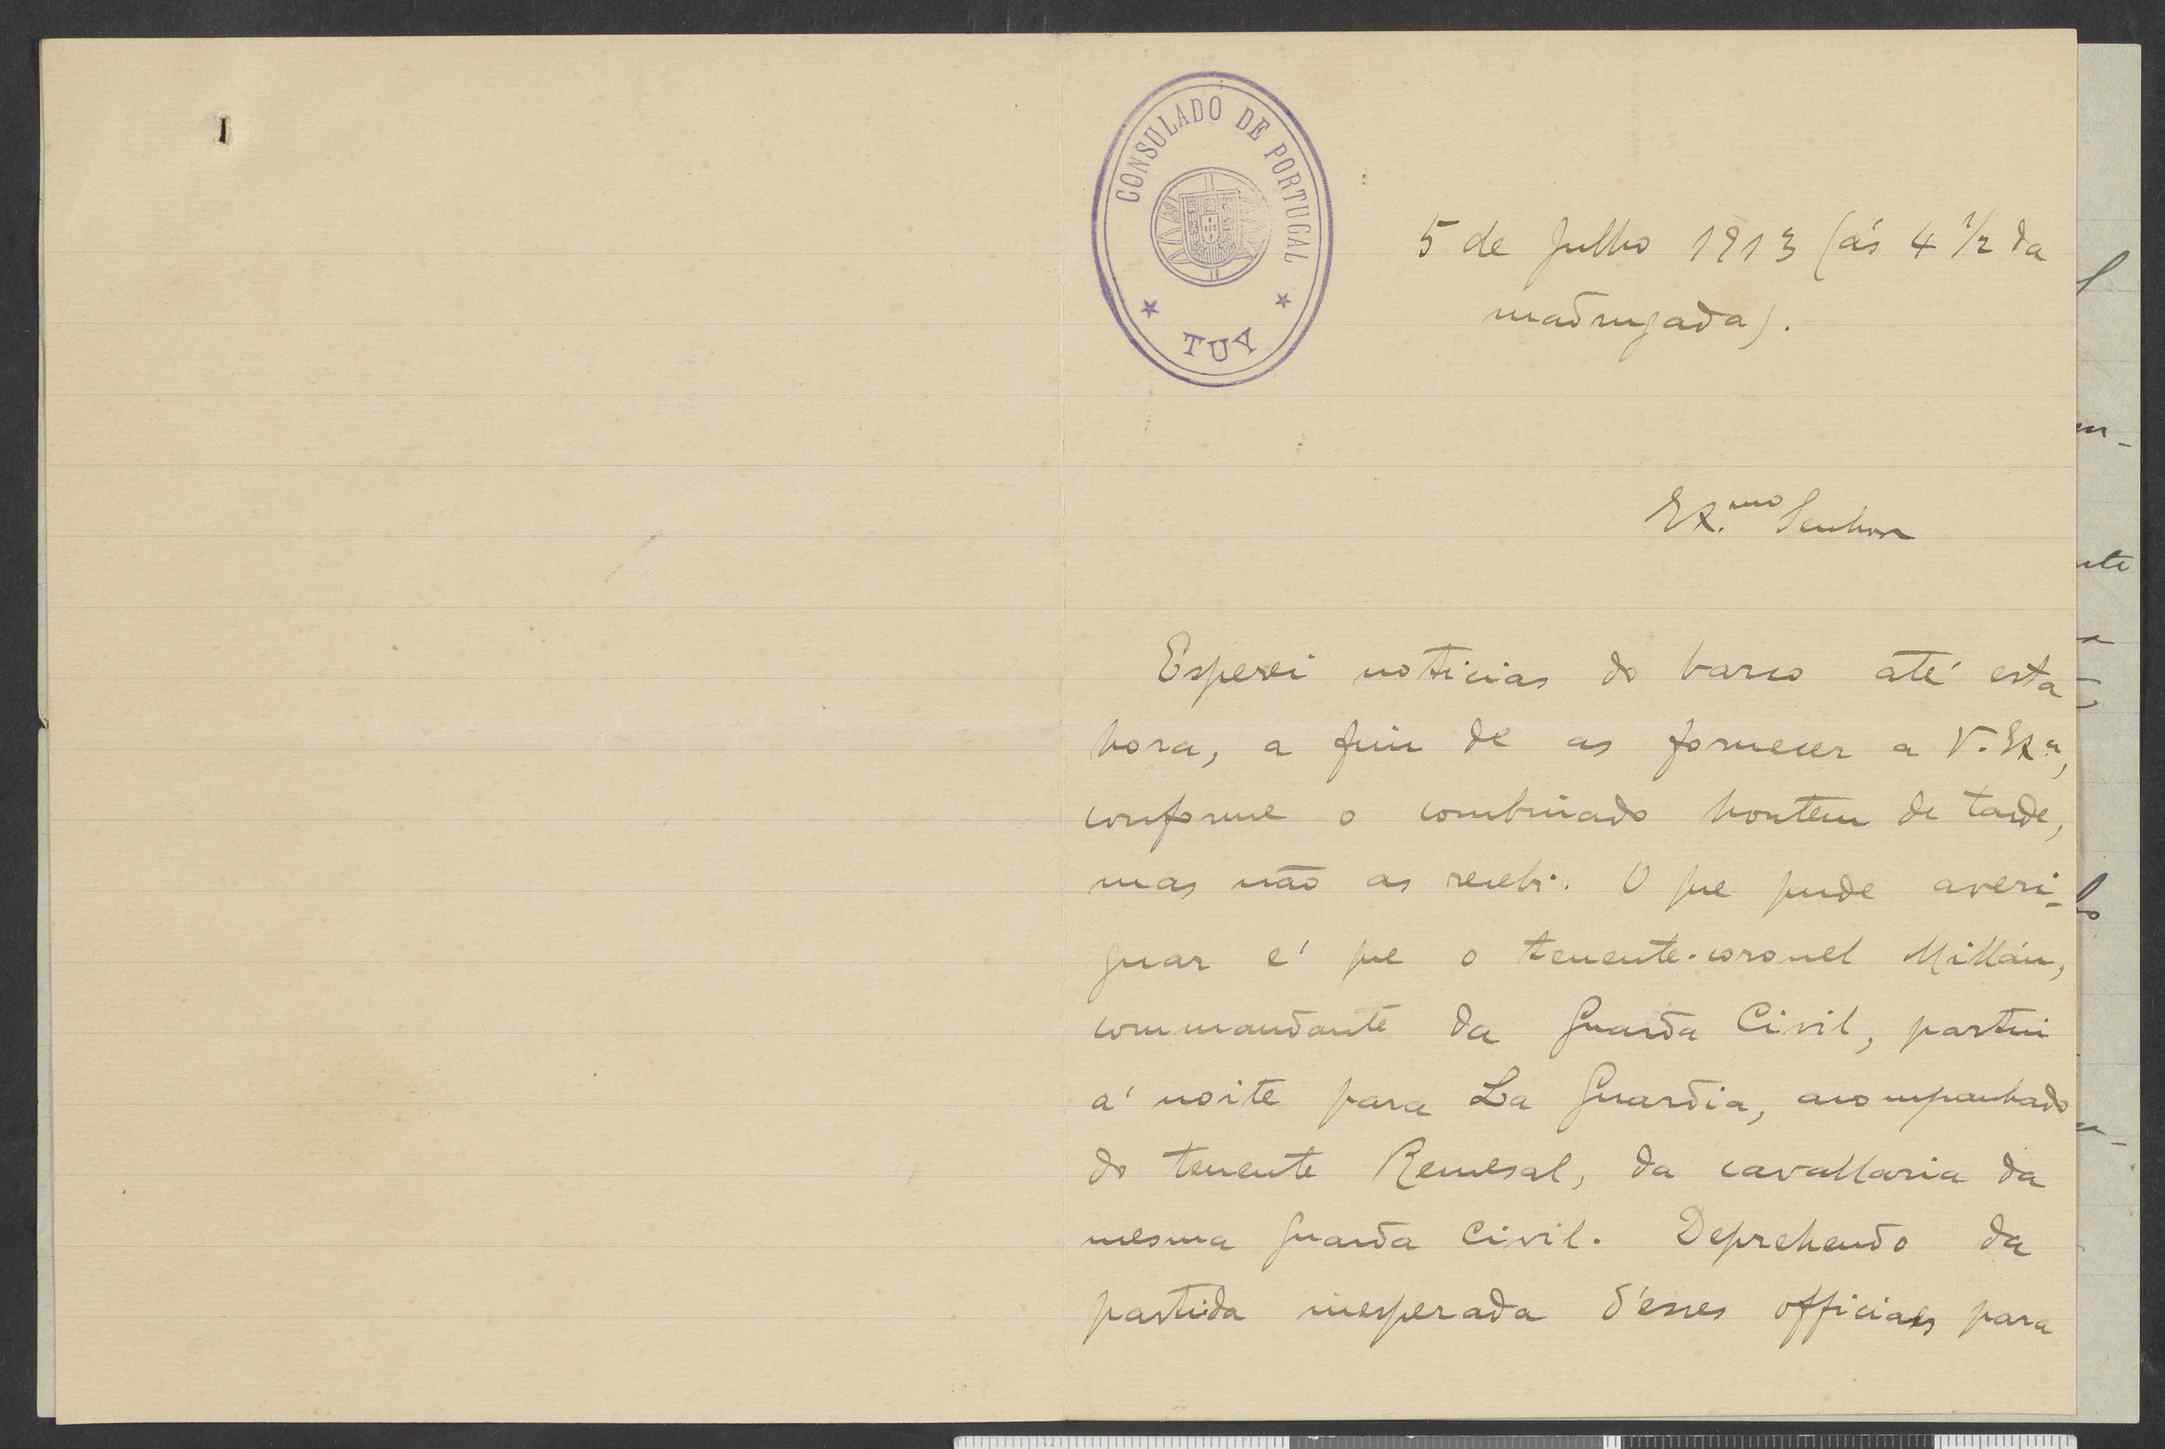 CONSULADO DE PORTUGAL
TUY
5 de Julho 1913 (ás 4 1/2 da
madrugada).
Ex.mo Senhor
Esperei noticias do barco até esta
hora, a fim de as fornecer a V. Exª,
conforme o combinado hontem de tarde,
mas não as recebi. O que pude averi-
guar é que o tenente-coronel Millán,
commandante da Guarda Civil, partiu
á noite para La Guardia, acompanhado
do tenente Remesal, da cavallaria da
mesma Guarda Civil. Deprehendo da
partida inesperada d'esses officiaes para